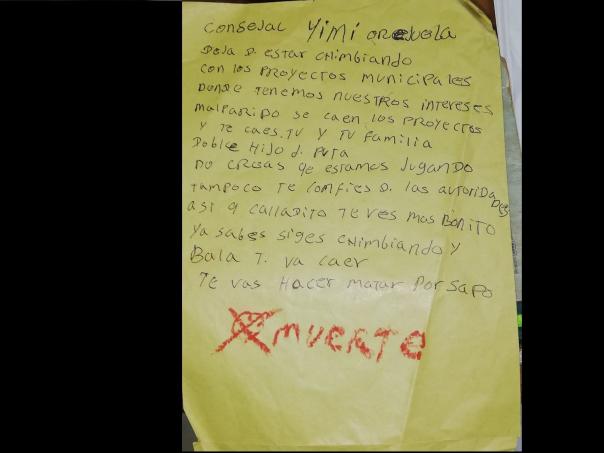 Consejal Yimi orejuela
Deja D. estar chimbiando
con los proyectos municipales
donde tenemos nuestros intereses
malparido se caen los proyectos
y te caes. tu y tu familia
Doble Hijo d. puta
no creas qe estamos jugando
tampoco te confies D. las autoridades
asi q calladito te ves mas Bonito
ya sabes siges chimbiando y
Bala T. va caer
Te vas Hacer matar por sapo
muerte